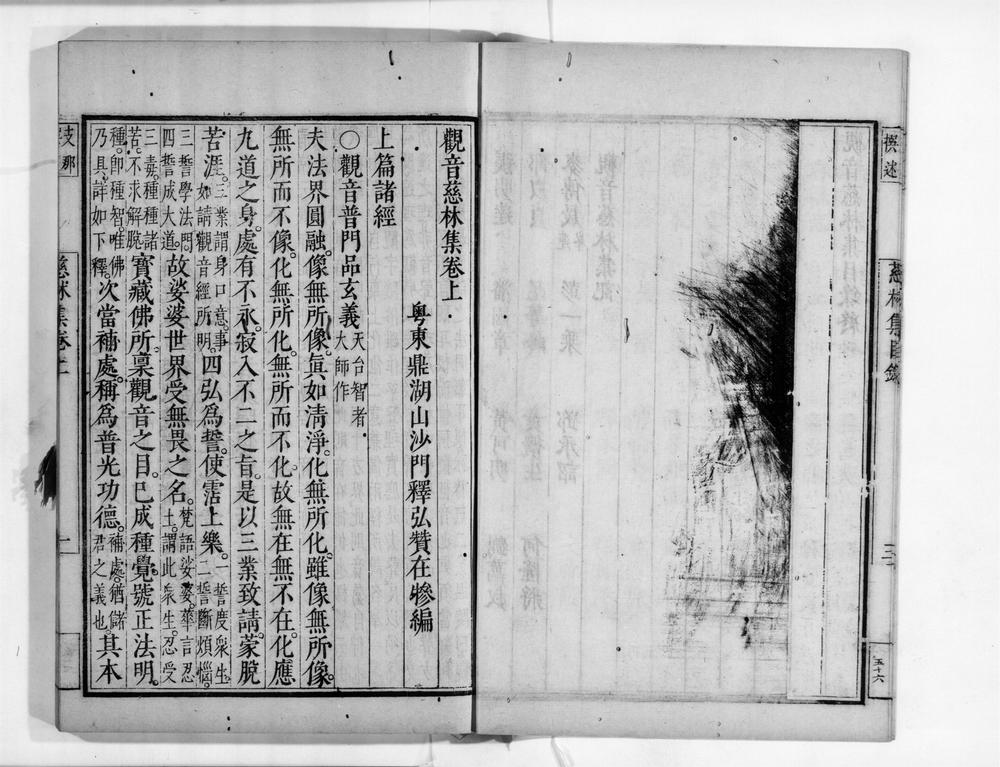 撰述
慈林集目錄
三
五十六
觀音慈林集卷上
粵東鼎湖山沙門釋弘贊在犙編
上篇諸經
〇觀音普門品玄義天台智者大師作
夫法界圓融。像無所像。眞如清淨。化無所化。雖像無所像。
無所而不像。化無所化。無所而不化。故無在無不在。化應
九道之身。處有不永。寂入不二之旨。是以三業致請。蒙脫
苦涯。三業謂身口意。事如請觀音經所明。四弘爲誓。使霑上樂。一誓度衆生二誓斷煩惱。
三誓學法門。四誓成大道。故娑婆世界受無畏之名。梵語娑婆。華言忍土。謂此衆生。忍受
三毒。種種諸苦。不求解脫寶藏佛所。禀觀音之目。已成種覺。號正法明。
種。卽種智。唯佛乃具。詳如下釋。次當補處。稱爲普光功德。補處。猶儲君之義也。其本
支那
慈林集卷上
一